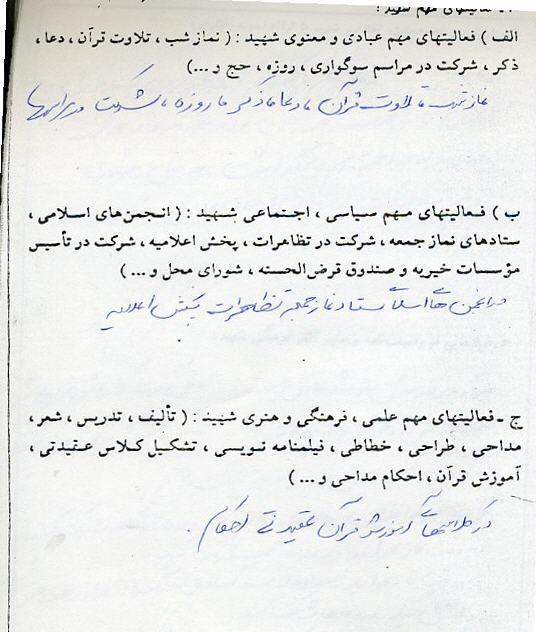 فعالیتهای مهم شهید :
الف ) فعالیتهای مهم عبادی و معنوی شهید : ( نماز شب ، تلاوت قرآن ، دعا ،
ذکر ، شرکت در مراسم سوگواری ، روزه ، حج و ...)
نماز شب تلاوت قرآن ، دعا ذکر روزه ، شرکت در مراسمها
ب ) فـعالیتهای مـهم سیاسی ، اجـتماعی شـهید : ( انـجمن‌های اسـلامی ،
ستادهای نماز جمعه ، شرکت در تظاهرات ، پخش اعلامیه ، شرکت در تأسیس
مؤسسات خیریه و صندوق قرض‌الحسنه ، شورای محل و ... )
در انجمن های اسلامی ستاد نماز جمعه تظاهرات پخش اعلامیه
ج - فعالیتهای مهم علمی ، فرهنگی و هنری شهید : ( تألیف ، تدریس ، شعر ،
مداحی ، طراحی ، خطاطی ، فیلمنامه نویسی ، تشکیل کلاس عـقیدتی ،
آموزش قرآن ، احکام مداحی و ... )
در کلاسهای آموزش قرآن عقیدتی احکام .